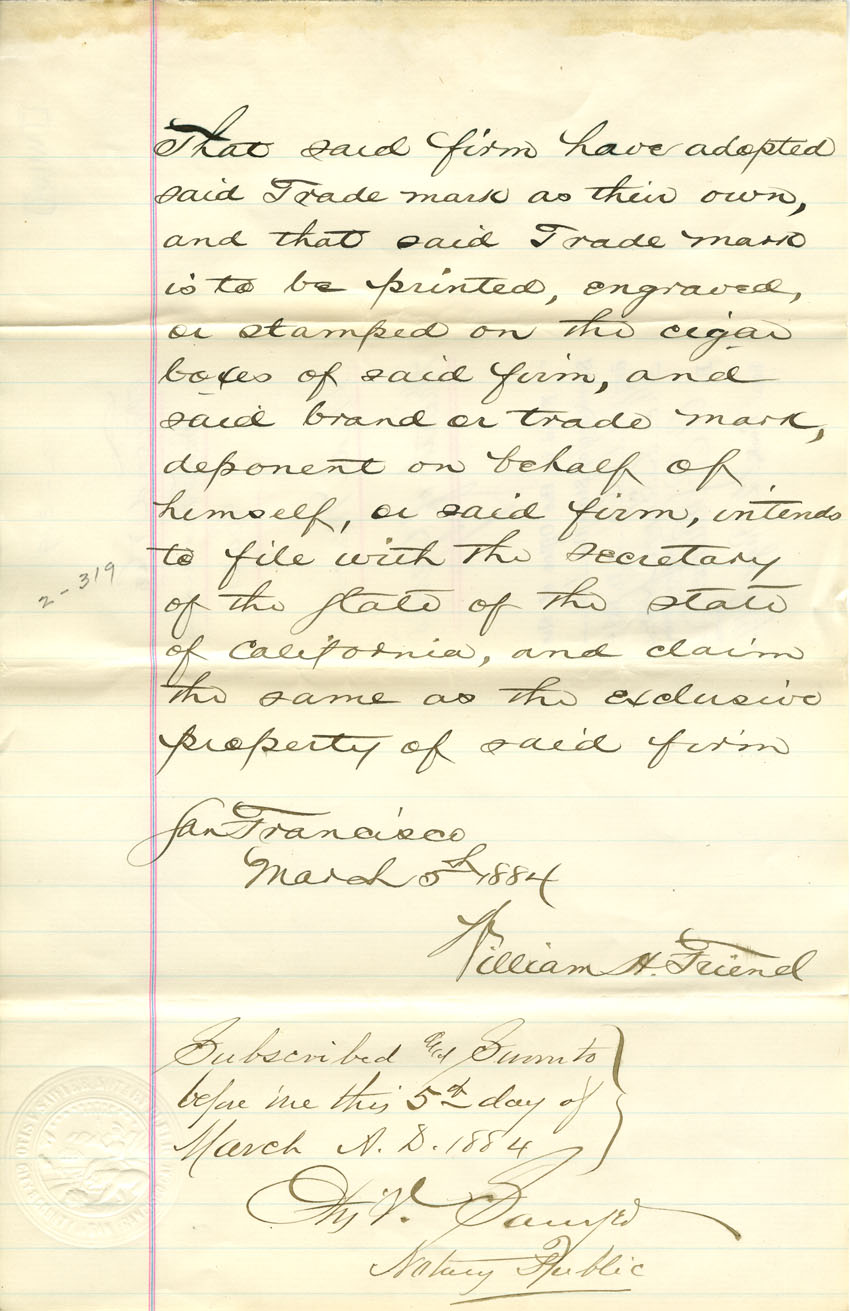 That said firm have adopted
said Trade mark as their own,
and that said Trade mark
is to be printed, engraved,
or stamped on the cigar
boxes of said firm, and
said brand or trade mark,
deponent on behalf of
himself, or said firm, intends
to file with the secretary
2-319
of the State of the state
of California, and claim
the same as the exclusive
property of said firm
San Francisco
March 5th 1884
William H. Friend
Subscribed and Sworn to
before me this 5th day of
March A. D. 1884
Otis V. Sawyer
Notary Public